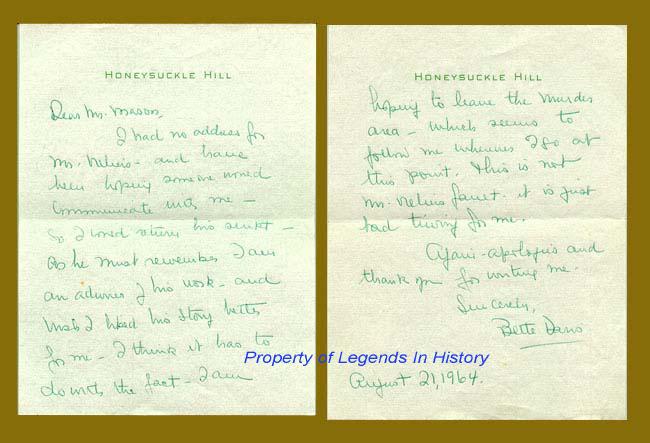 HONEYSUCKLE HILL
Dear Mr. Mason,
I had no address for
Mr. – and have
been hoping someone would
communicate with me –
So I could return his script –
As he must remember I am
an admirer of his work – and
wish I liked his story better
for me – I think it has to
do with the fact – I am
HONEYSUCKLE HILL
hoping to leave the murder
area – which seems to
follow me wherever I go at
this point. This is not
Mr. fault. it is just
bad timing for me.
Again – apologies and
thank you for writing me.
Sincerely,
Bette Davis
August 21, 1964.
Property of Legends In History